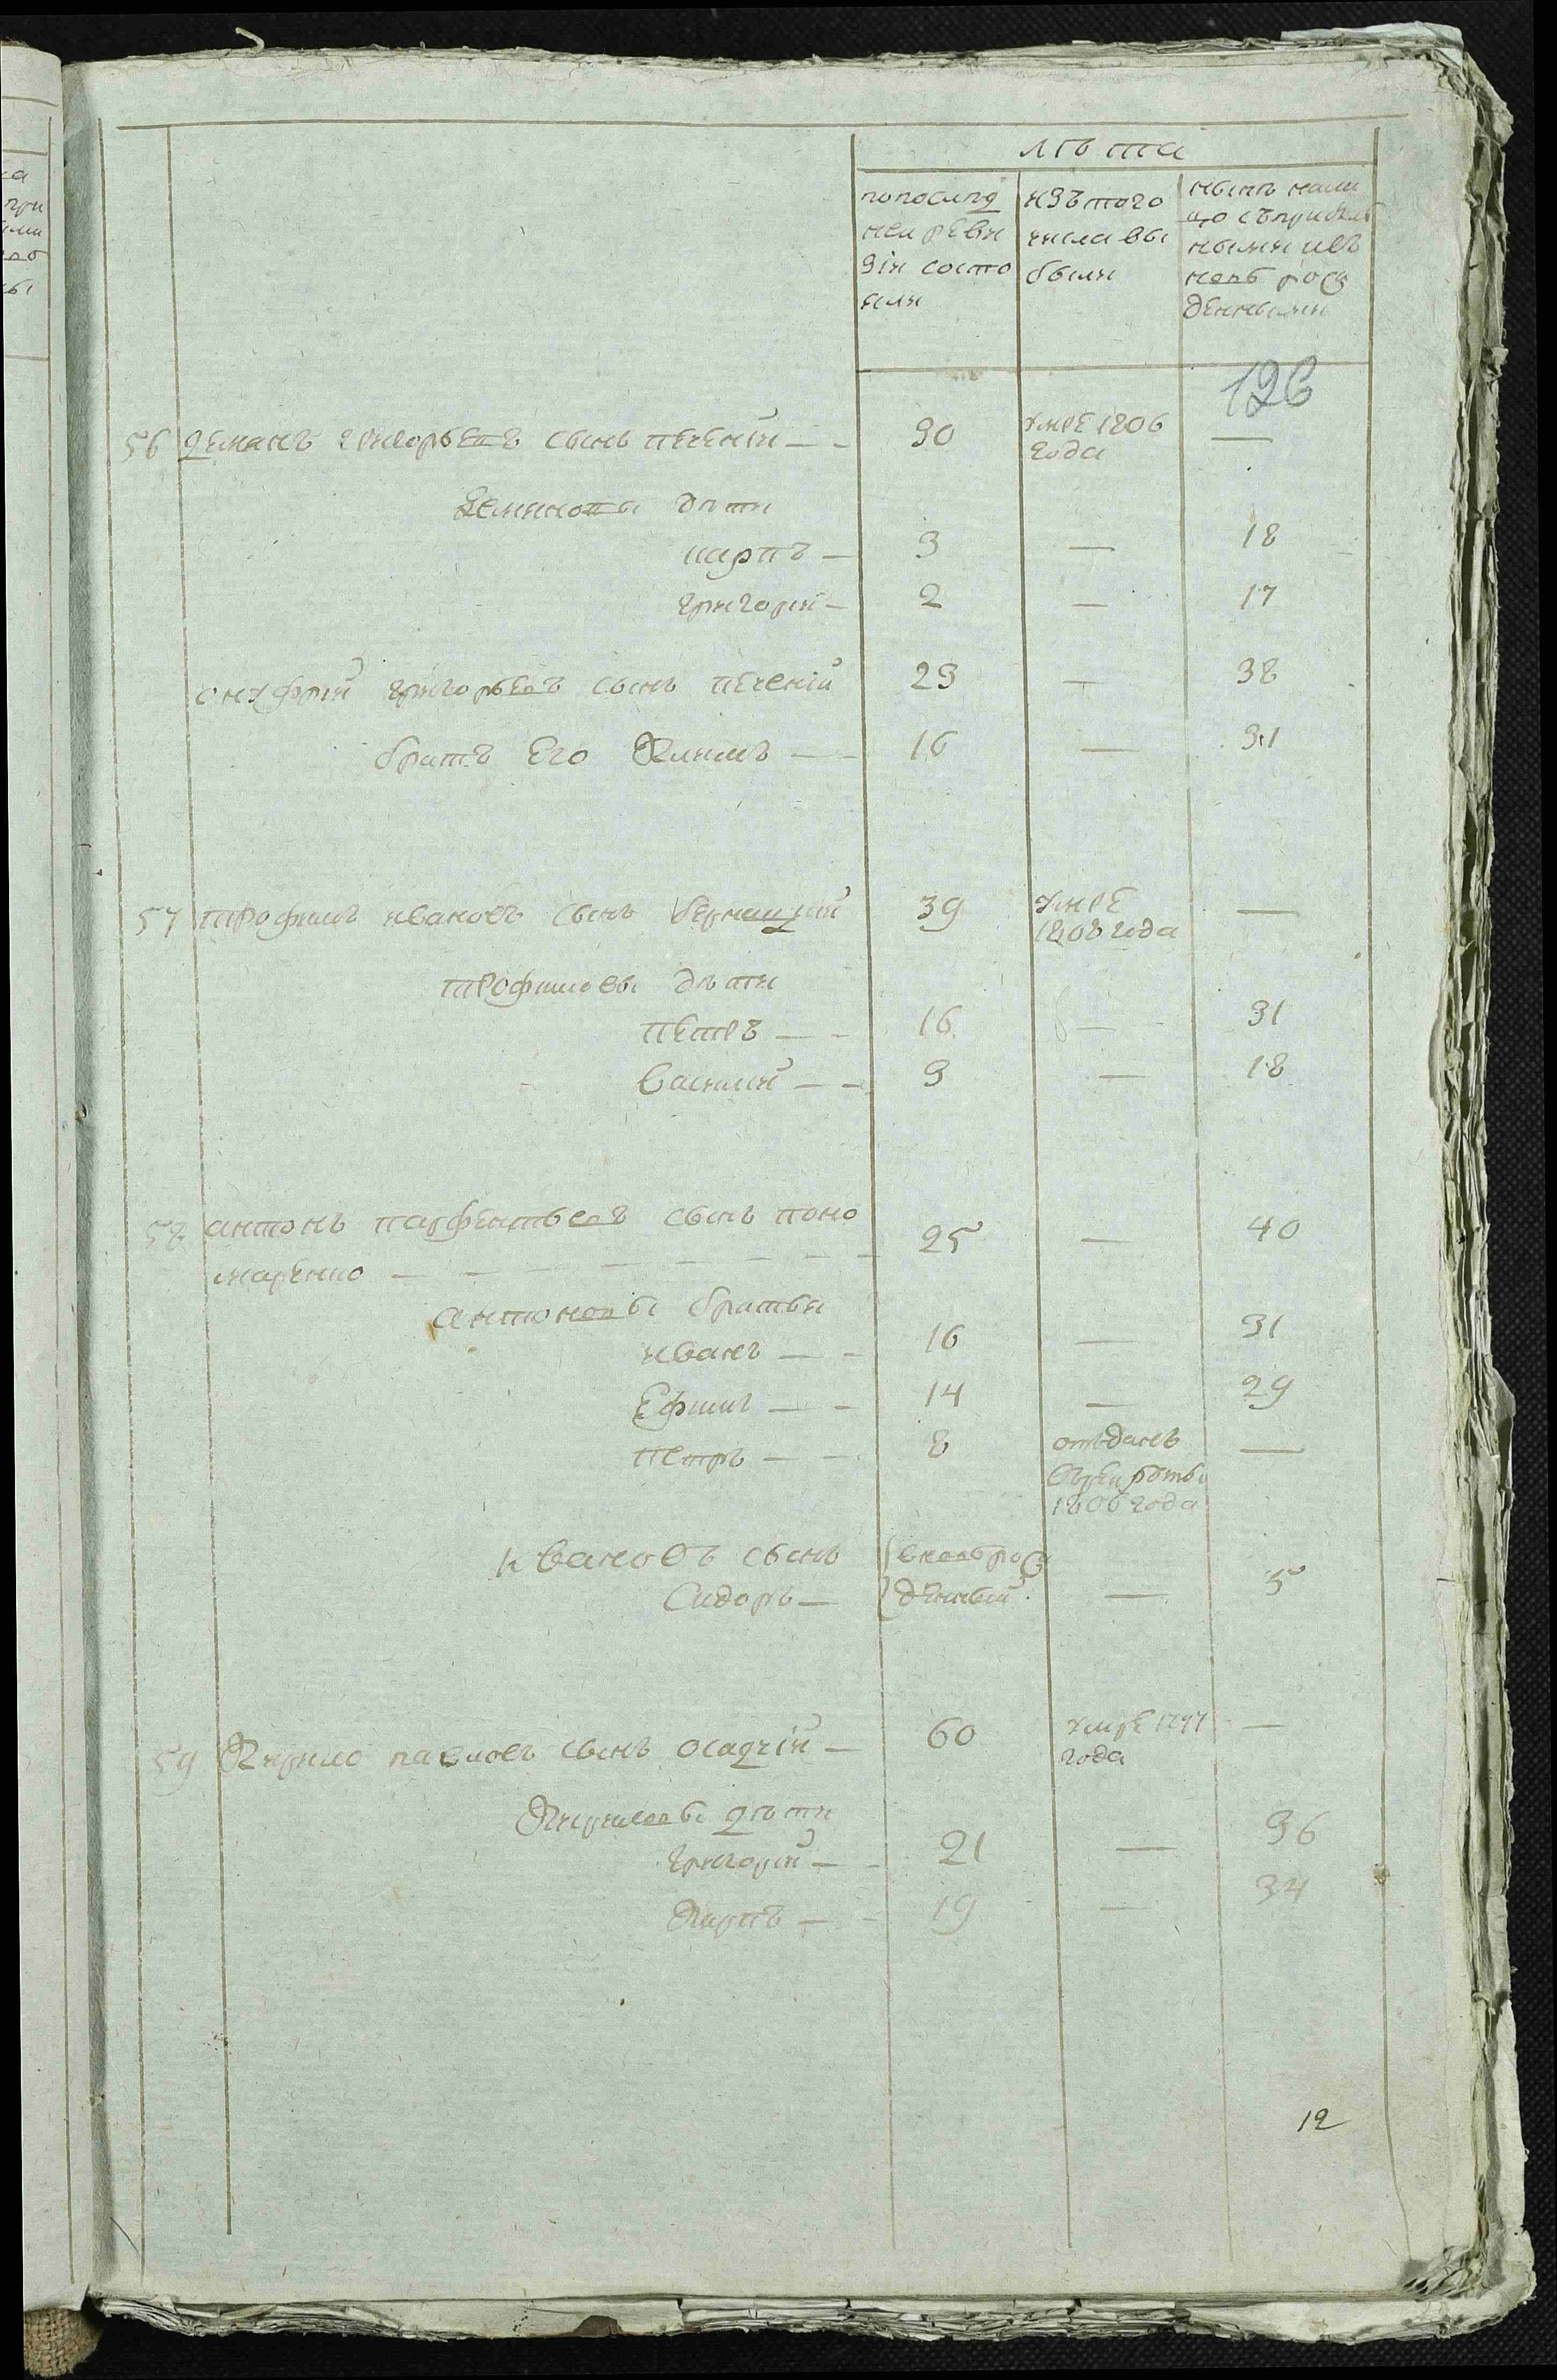 лѣта
по послѣд
ней реви
зіи состо
яли
изъ того
числа вы
были
нынѣ на ли
цо съ прибыл
ными и въ
новь рож
денными
126
56 Деманъ григорьевъ сынъ печеній — — 30 умре 1806
года —
Деминовы дѣти
карпъ — 3 — 18
григорій — 2 — 17
онуфрій григорьевъ сынъ печеній 23 — 38
братъ его Климъ — — 16 — 31
57 трофимъ ивановъ сынъ 39 умре
1808 года —
трофимовы дѣти
петръ — — 16 — 31
василій — — 3 — 18
58 антонъ парфентьевъ сынъ поно
маренко — — — — — — — 25 — 40
антоновы братья
иванъ — — 16 — 31
Ефимъ — — 14 — 29
петръ — — 8 отъданъ —
въ рекруты
1806 года
ивановъ сынъ вновь рож
Сидоръ — денный — 5
59 Кирило павловъ сынъ осадчій — 60 умре 1797 —
года
Кириловы дѣти
григорій — — 21 — 36
Карпъ — — 19 — 34
12